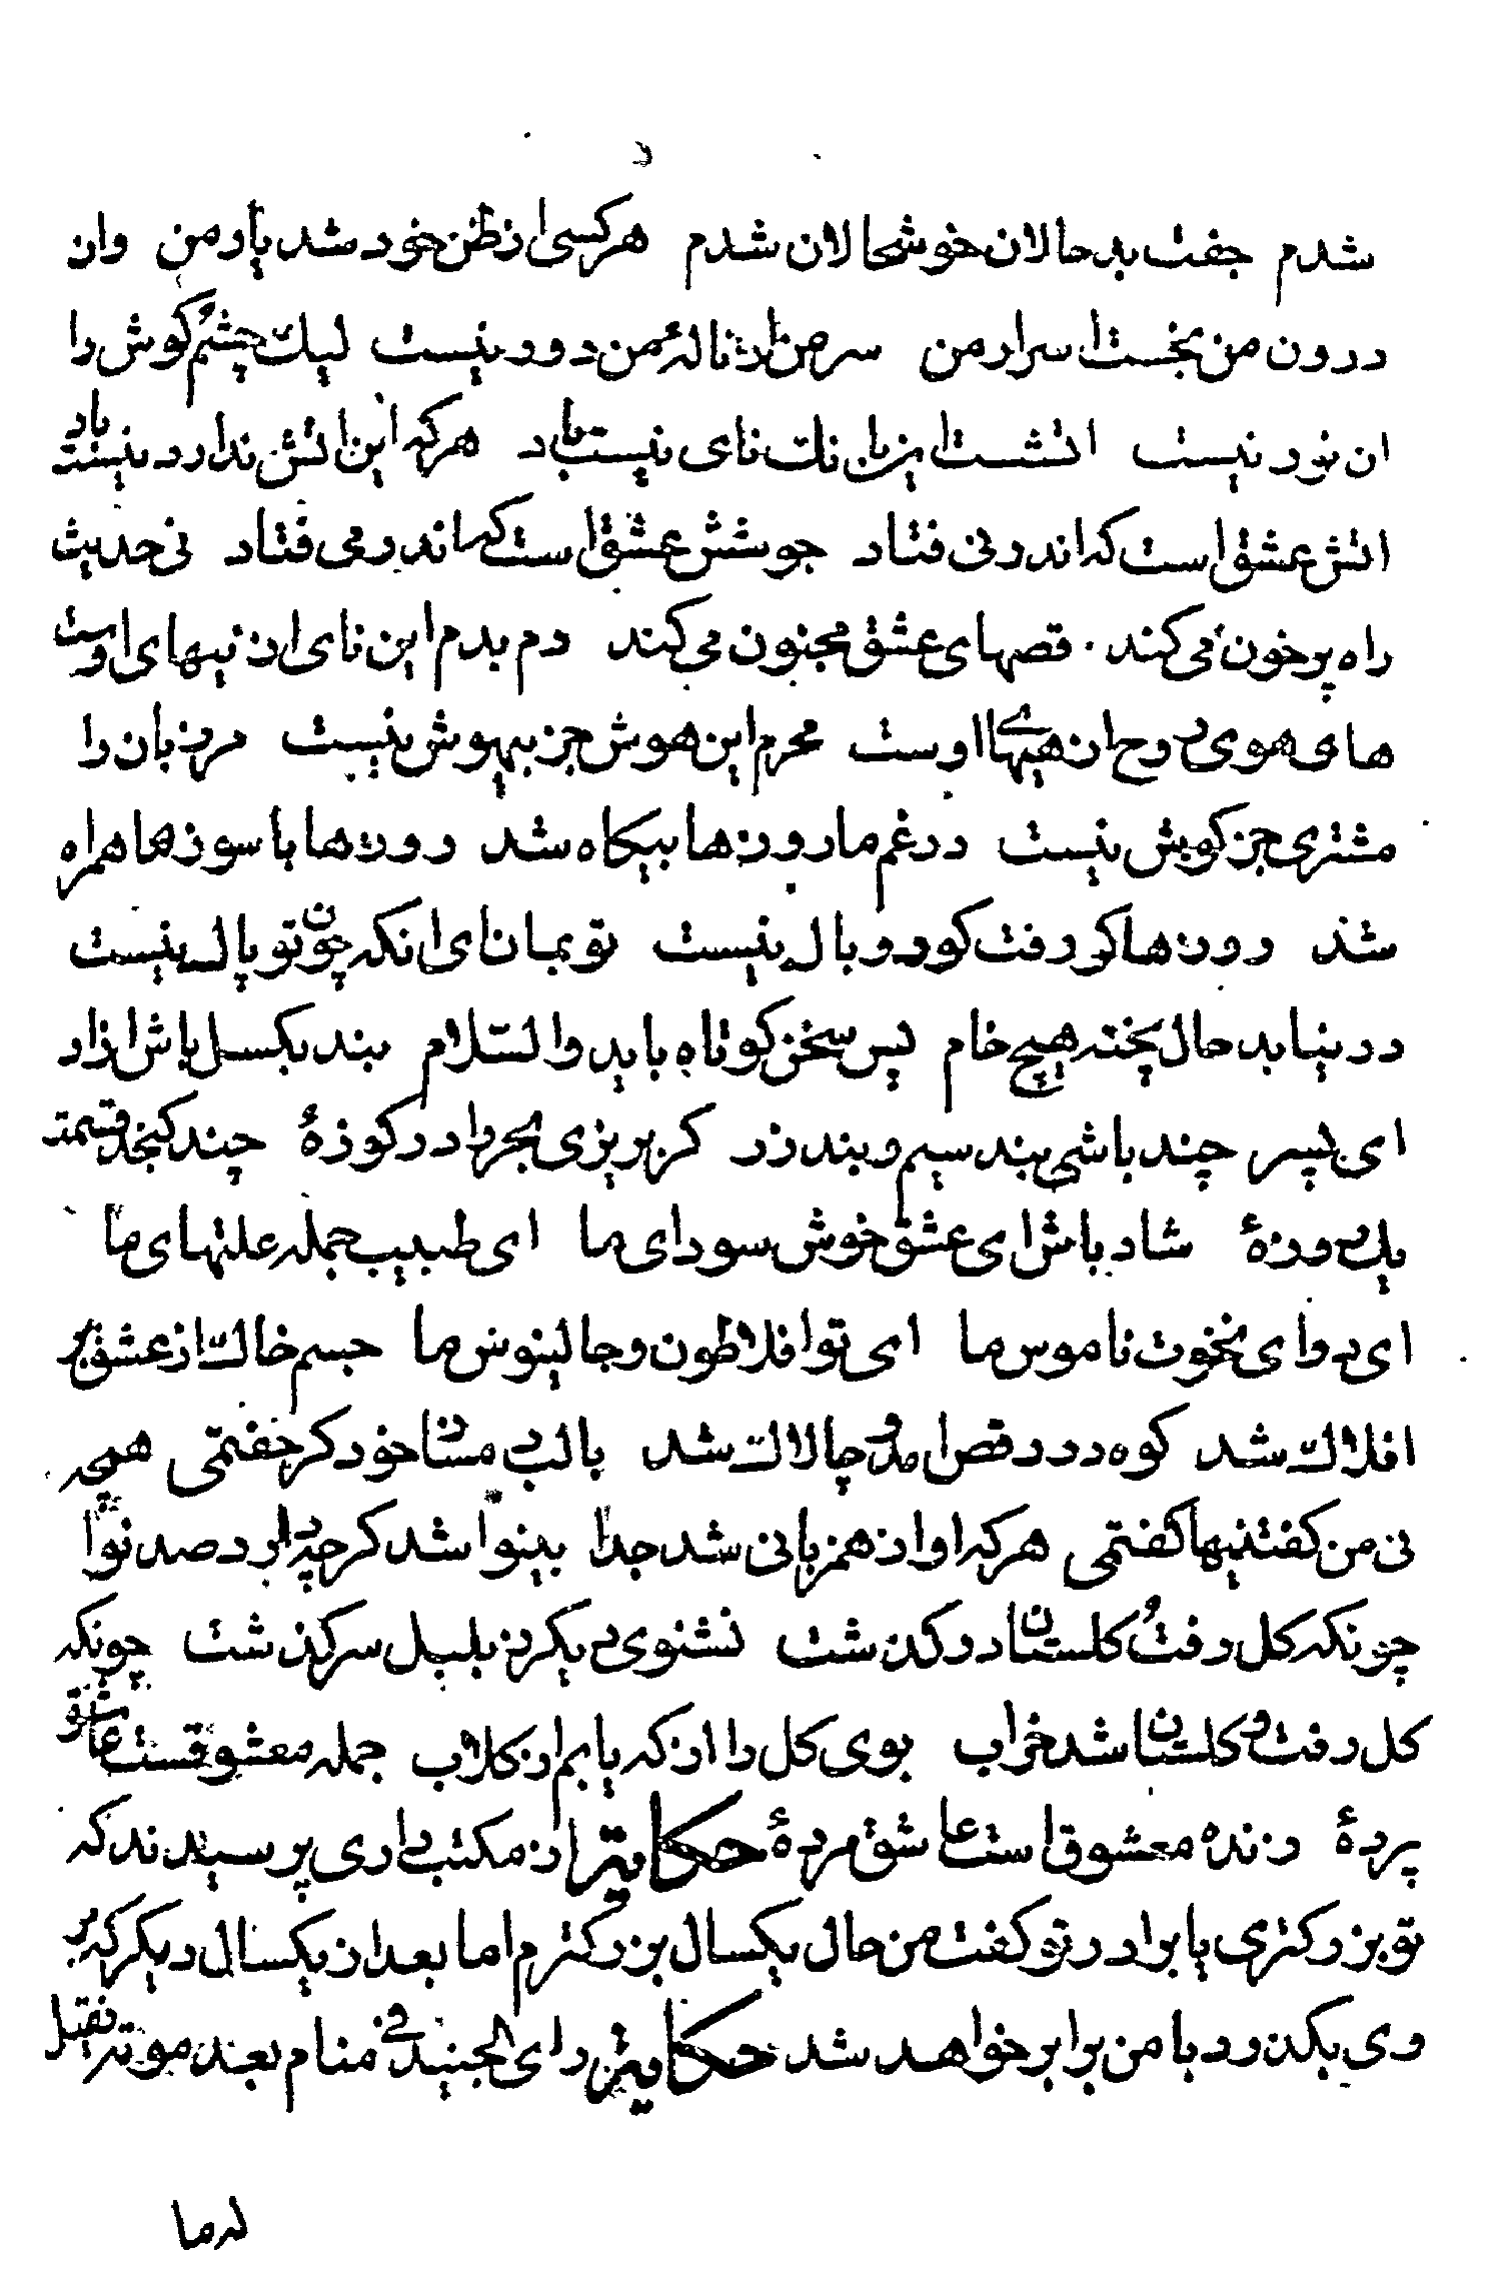 شدم جفت بدحالان خوشحالان شدم هر کسی از ظن خود شد یار من وان
درون من نجست اسرار من سر من از نالهٔ من دور نیست لیک چشم گوش را
ان نور نیست اتشست این بانک نای نیست باد هر که این اتش ندارد نیست باد
اتش عشق است که اندر نی فتاد جوشش عشق است که اندر می فتاد نی حدیث
راه پر خون می کند قصهای عشق مجنون می کند دم بدم این نای از نیهای اوست
های هوی روح از هیهای اوست محرم این هوش جز بیهوش نیست مر زبان را
مشتری جز کوش نیست در غم ما روزها بیکاه شد روزها با سوزها همراه
شد روزها کر رفت کو رو بال نیست تو بمان ای انکه چون تو پاک نیست
در نیابد حال پخته هیچ خام پس سخن کوتاه باید والسلام بند بکسل باش ازاد
ای پسر چند باشی بند سیم و بند زر کر بریزی بحر را در کوزهٔ چند کنجد قسمت
یک روزهٔ شاد باش ای عشق خوش سودای ما ای طبیب جمله علتهای ما
ای دوای نخوت ناموس ما ای تو افلاطون و جالینوس ما جسم خاک از عشق بر
افلاک شد کوه در رقص امد و چالاک شد با لب دمساز خود کر جفتمی همچو
نی من کفتنیها کفتمی هر که او از همزبانی شد جدا بینوا شد کر چه دارد صد نوا
چونکه کل رفت و کلستان درکذشت نشنوی دیکر ز بلبل سرکذشت چونکه
کل رفت و کلستان شد خراب بوی کل را از که یابم از کلاب جمله معشوقست عاشق
پردهٔ زنده معشوق است عاشق مردهٔ حکایت از مکتب داری پرسیدند که
تو بزرکتری یا برادر تو کفت من حال یکسال بزرکترم اما بعد از یکسال دیکر که بر
وی بکذرد با من برابر خواهد شد حکایت رای الجنید فی منام بعد موته فقیل
له ما